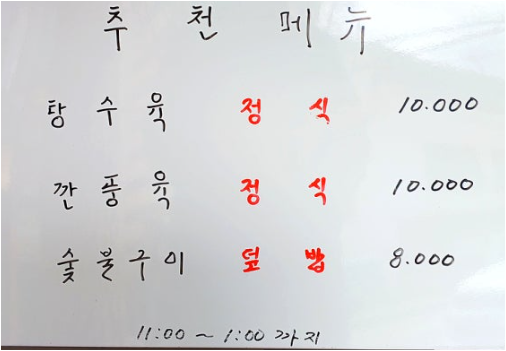 추천 메뉴
탕수육 정식 10.000
깐풍육 정식 10.000
숯불구이 덮밥 8.000
11:00 ~ 1:00 까지